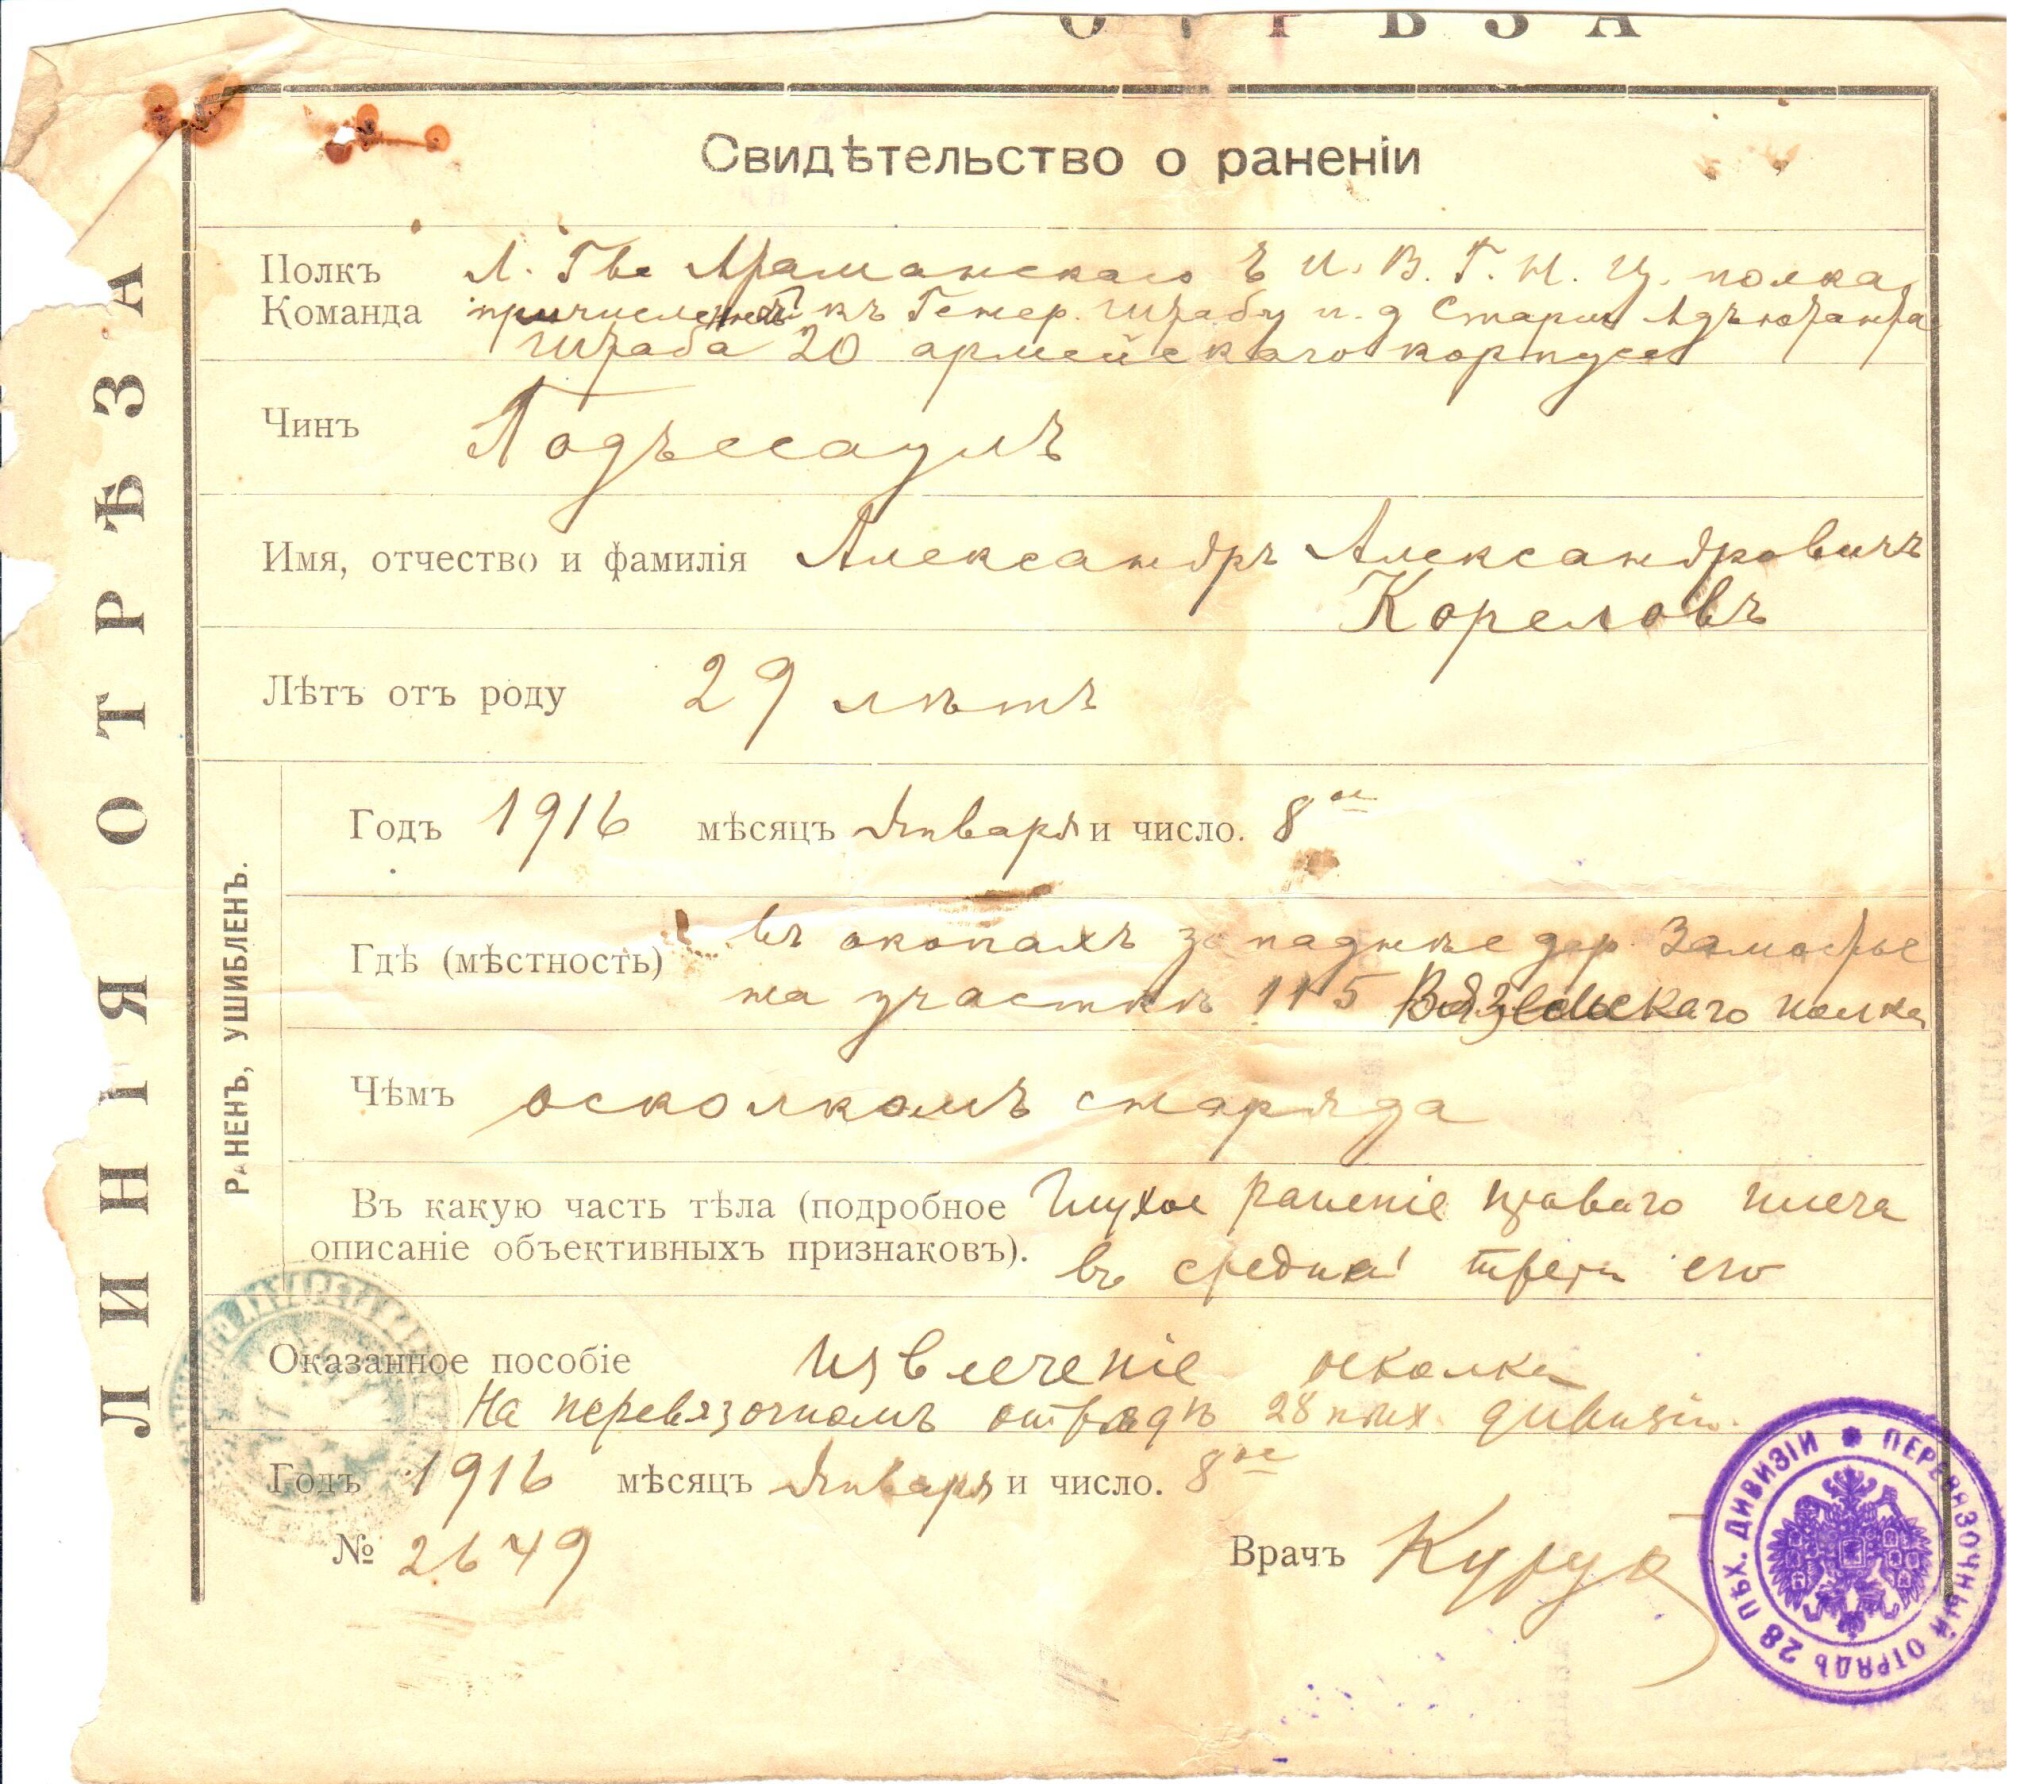 ОТРѢЗА
ЛИНІЯ ОТРѢЗА
Свидѣтельство о раненіи
Полкъ Л. Гв. Атаманскаго Е И. В. Г. Н. Ц. полка,
Команда причисленный къ Генер. Штабу и. д Старш Адъютанта
Штаба 20 армейскаго корпуса
Чинъ Подъесаулъ
Имя, отчество и фамилія Александръ Александровичъ
Кореловъ
Лѣтъ отъ роду 29 лѣтъ
РАНЕНЪ, УШИБЛЕНЪ.
Годъ 1916 мѣсяцъ Января и число. 8ое
Гдѣ (мѣстность) въ окопахъ западнѣе дер. Замостье
на участкѣ 115 Вяземскаго полка
Чѣмъ осколкомъ снаряда
Въ какую часть тѣла (подробное Глухое раненіе праваго плеча
описаніе объективныхъ признаковъ). въ средней трети его
Оказанное пособіе Извлеченіе осколка
На перевязочномъ отрядѣ 28 пѣх. дивизіи.
Годъ 1916 мѣсяцъ Января и число. 8ое
№ 2649 Врачъ
ПЕРЕВЯЗОЧНЫЙ ОТРЯДЪ 28 ПѢХ. ДИВИЗІИ